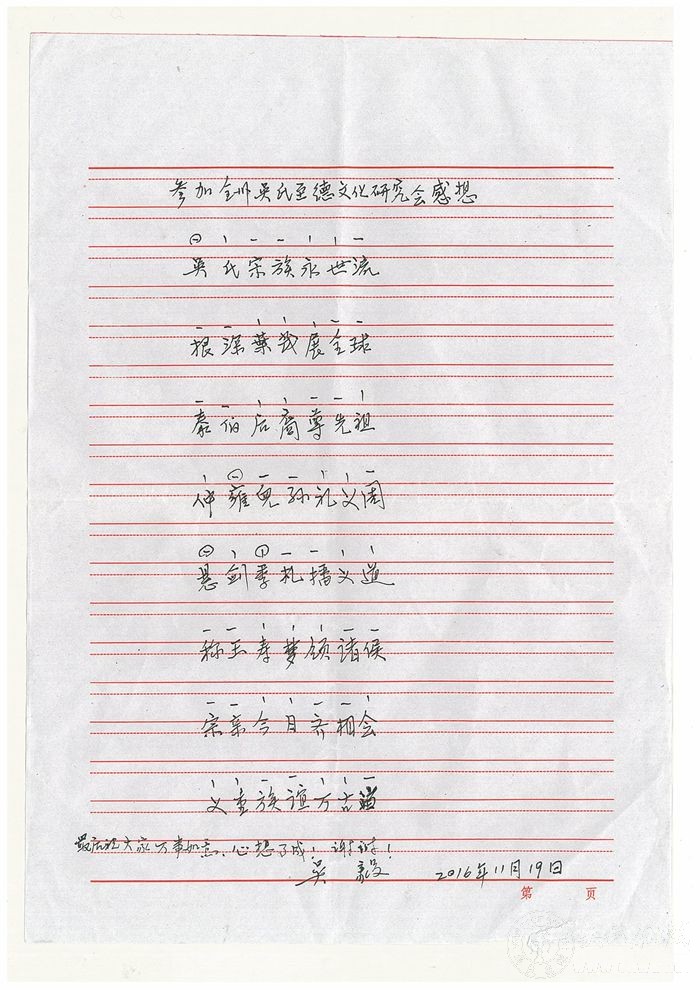 参加全州吴氏至德文化研究会感想
吴氏宗族永世流
根深葉茂展全球
泰伯后裔尊先祖
仲雍児孙礼义周
悬剑季札播义道
称王寿梦领诸侯
宗亲今日齐相会
义重族谊万古
最后祝大家万事如意、心想事成！谢谢！
吴毅 2016年11月19日
第 页